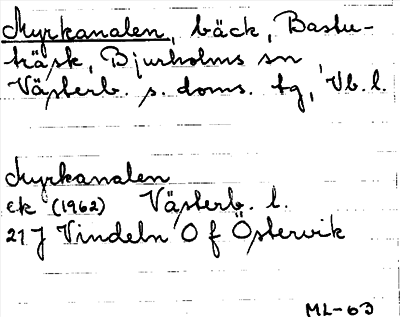 Myrkanalen, bäck, Bastu-
träsk, Bjurholms sn
Västerb. s. doms. tg, Vb. l.
Myrkanalen
ek (1962) Västerb. l.
21J Vindeln O f Östervik
ML-63